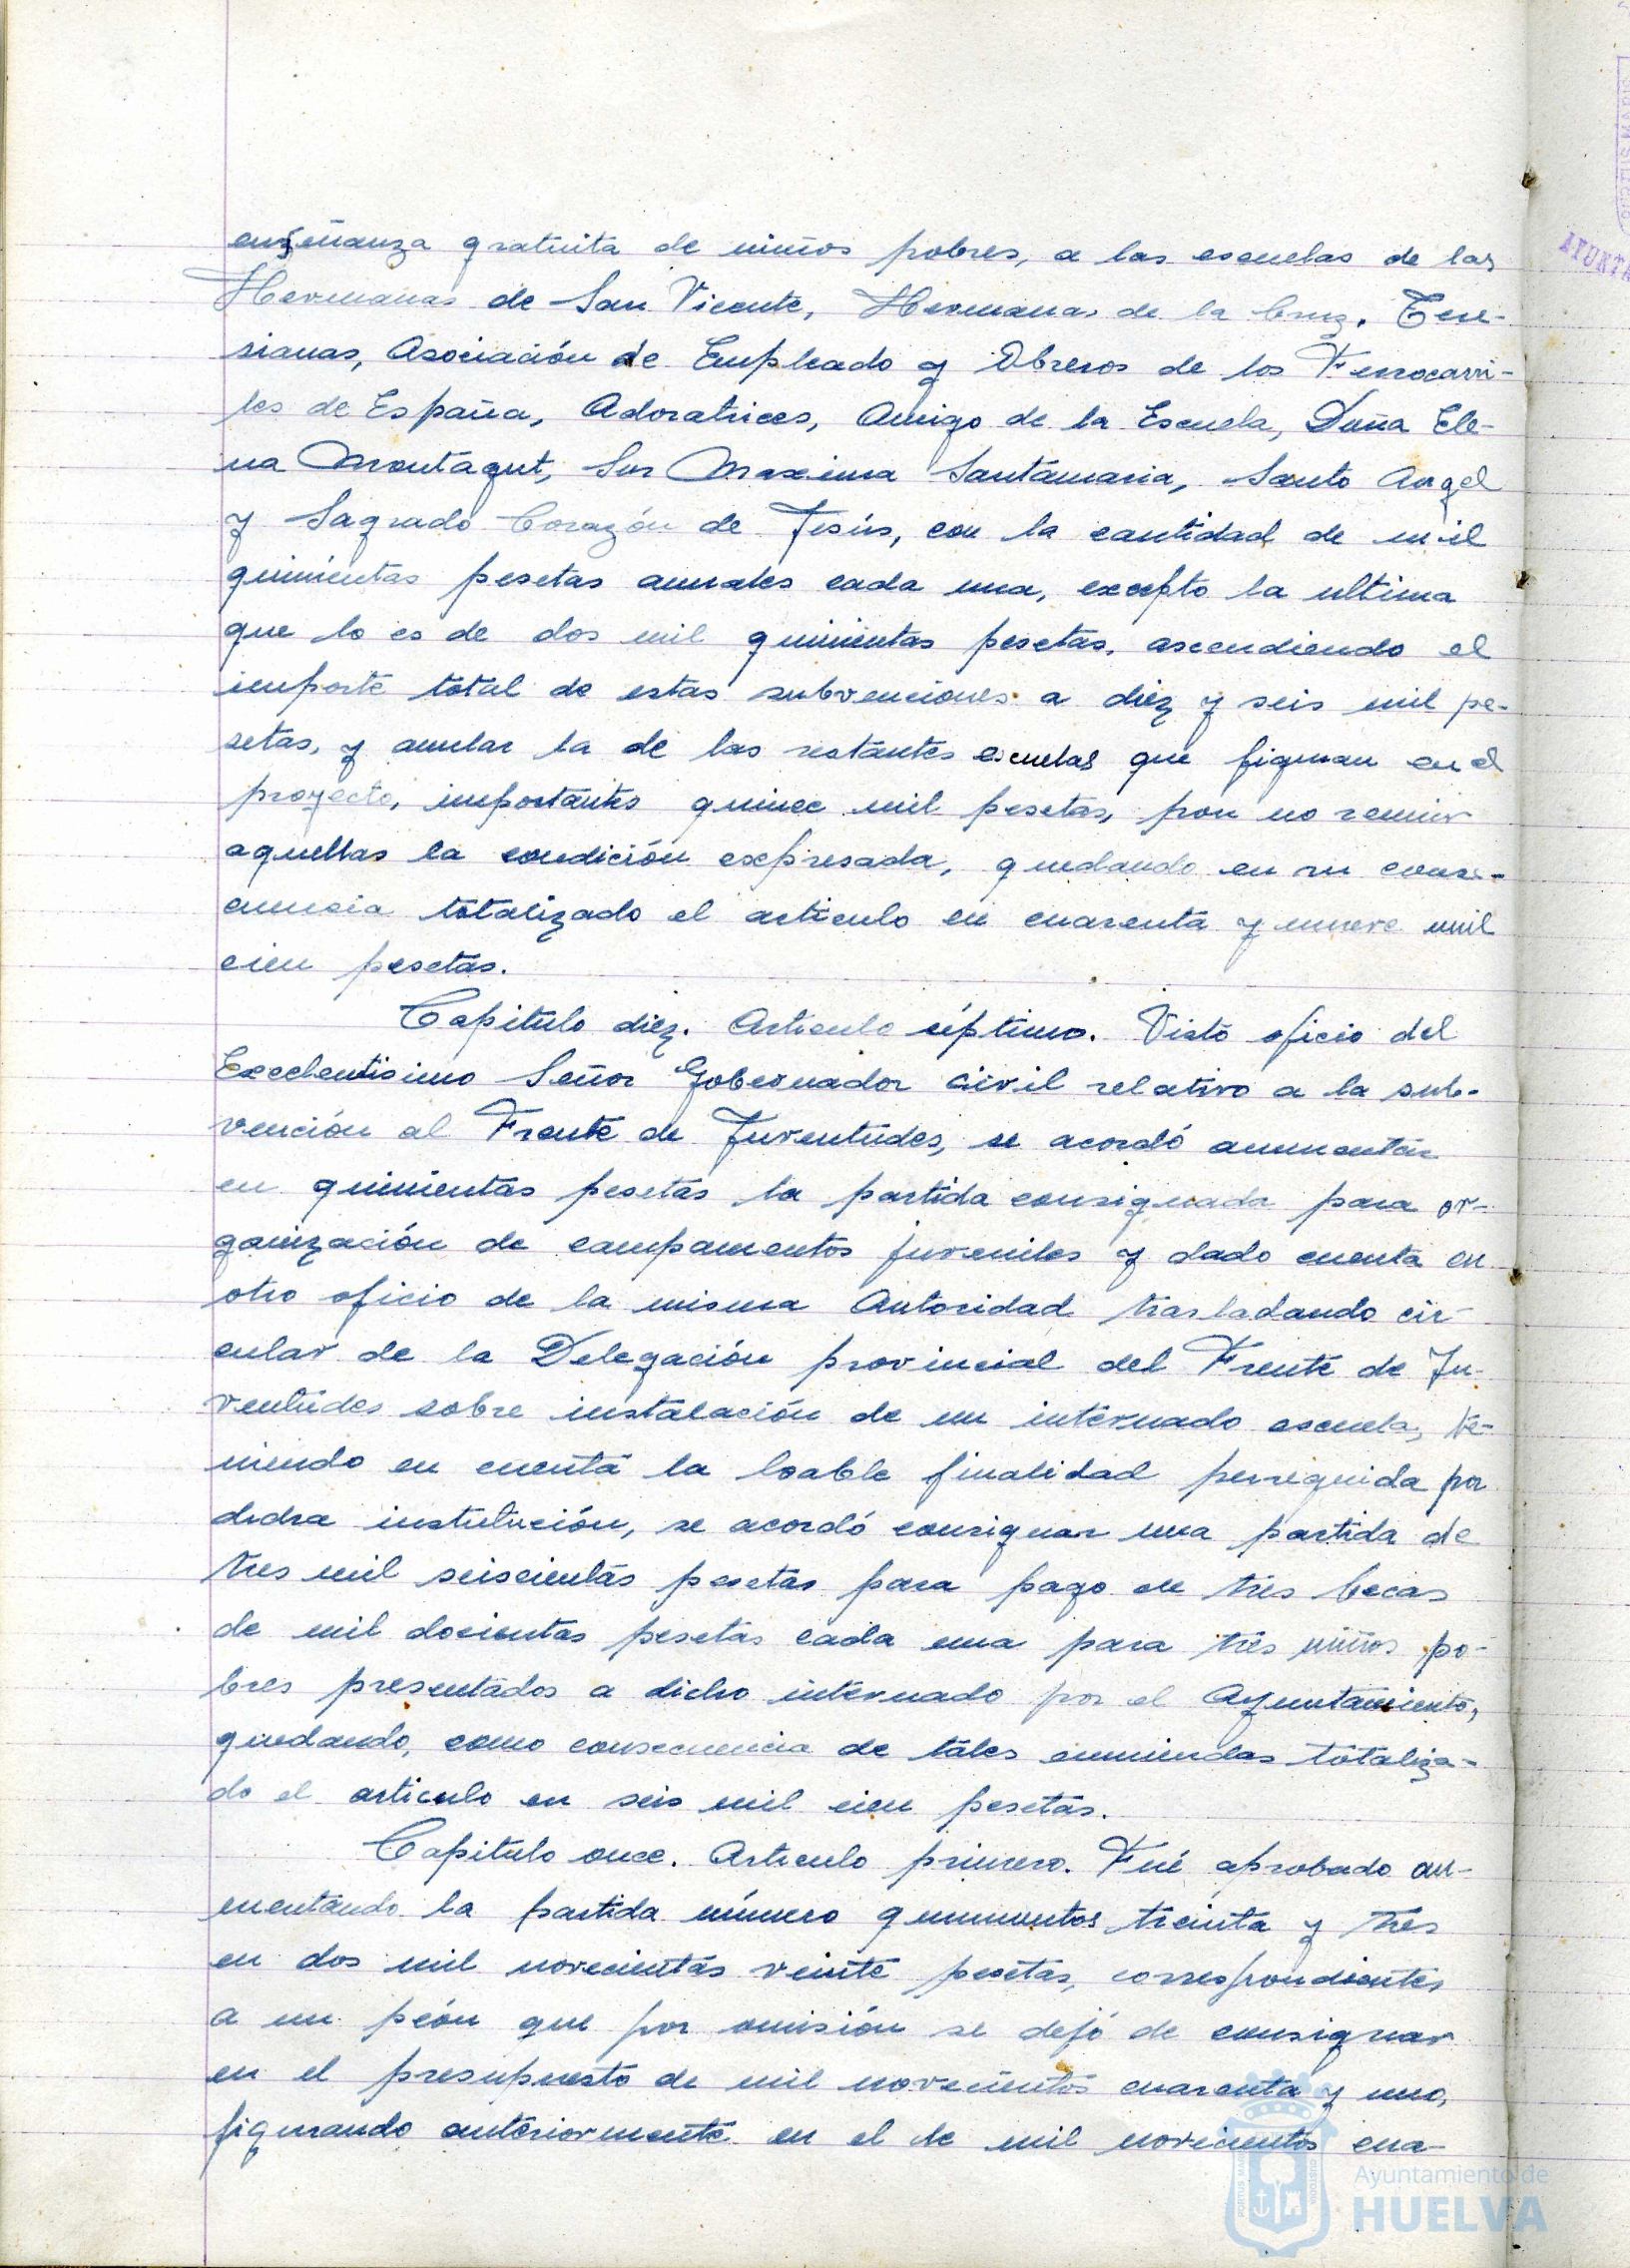 enseñanza gratuita de niños pobres, a las escuelas de las
Hermanas de San Vicente, Hermanas de la Cruz, Tere-
sianas, Asociación de Empleado y Obreros de los Ferrocarri-
les de España, Adoratrices, Amigo de la Escuela, Doña Ele-
na Montagut, Sor Maxima Santamaria, Santo Angel
y Sagrado Corazón de Jesús, con la cantidad de mil
quinientas pesetas anuales cada una, excepto la ultima
que lo es de dos mil quinientas pesetas, ascendiendo el
importe total de estas subvenciones a diez y seis mil pe-
setas, y anular la de las restantes escuelas que figuran en el
proyecto, importantes quince mil pesetas, por no reunir
aquellas la condición expresada, quedando en su conse-
cuencia totalizado el articulo en cuarenta y nueve mil
cien pesetas.
Capitulo diez. Articulo séptimo. Visto oficio del
Excelentisimo Señor Gobernador Civil relativo a la sub-
vención al Frente de Juventudes, se acordó aumentar
en quinientas pesetas la partida consignada para or-
ganización de campamentos juveniles y dado cuenta en
otro oficio de la misma Autoridad trasladando cir-
cular de la Delegación provincial del Frente de Ju-
ventudes sobre instalación de un internado escuela, te-
niendo en cuenta la loable finalidad perseguida por
dicha institución, se acordó consignar una partida de
tres mil seiscientas pesetas para pago de tres becas
de mil docientas pesetas cada una para tres niños po-
bres presentados a dicho internado por el Ayuntamiento,
quedando, como consecuencia de tales enmiendas totaliza-
do el articulo en seis mil cien pesetas.
Capitulo once. Articulo primero. Fué aprobado au-
mentando la partida número quinientos treinta y tres
en dos mil novecientas veinte pesetas, correspondientes
a un peón que por omisión se dejó de consignar
en el presupuesto de mil novecientos cuarenta y uno,
figurando anteriormente en el de mil novecientos cua-
AYUNTA
Ayuntamiento de
HUELVA